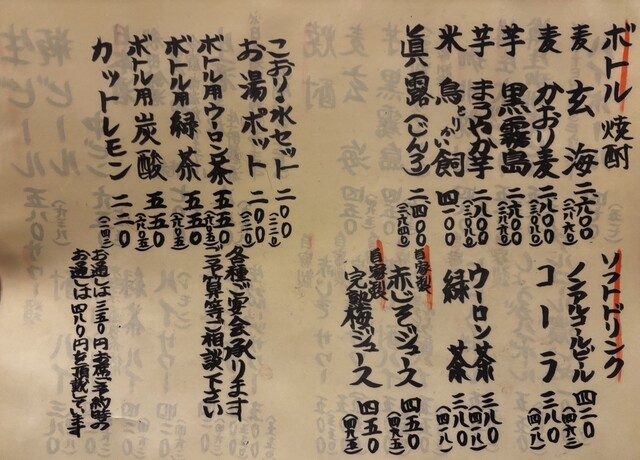 ボトル焼酎
麦 玄海 二、六〇〇(二八六〇)
麦 かおり麦 二、八〇〇(三〇八〇)
芋 黒霧島 二、六〇〇(二八六〇)
芋 まろやか芋 二、八〇〇(三〇八〇)
米 鳥飼 とりかい 四、一〇〇
眞露(じんろ) 二、四〇〇(二六四〇)
こおり・水セット 二〇〇(二二〇)
お湯ポット 二〇〇(二二〇)
ボトル用ウーロン茶 五五〇(六〇五)
ボトル用緑茶 五五〇(六〇五)
ボトル用炭酸 五五〇(六〇五)
カットレモン 二二〇(二四二)
ソフトドリンク
ノンアルコールビール 四二〇(四六二)
コーラ 三八〇(四一八)
ウーロン茶 三八〇(四一八)
緑茶 三八〇(四一八)
自家製 赤じそジュース 四五〇(四九五)
自家製 完熟梅ジュース 四五〇(四九五)
各種ご宴会承ります
ご予算等ご相談下さい
お通しは三五〇円 お席ご予約時の
お通しは四八〇円を頂戴しています